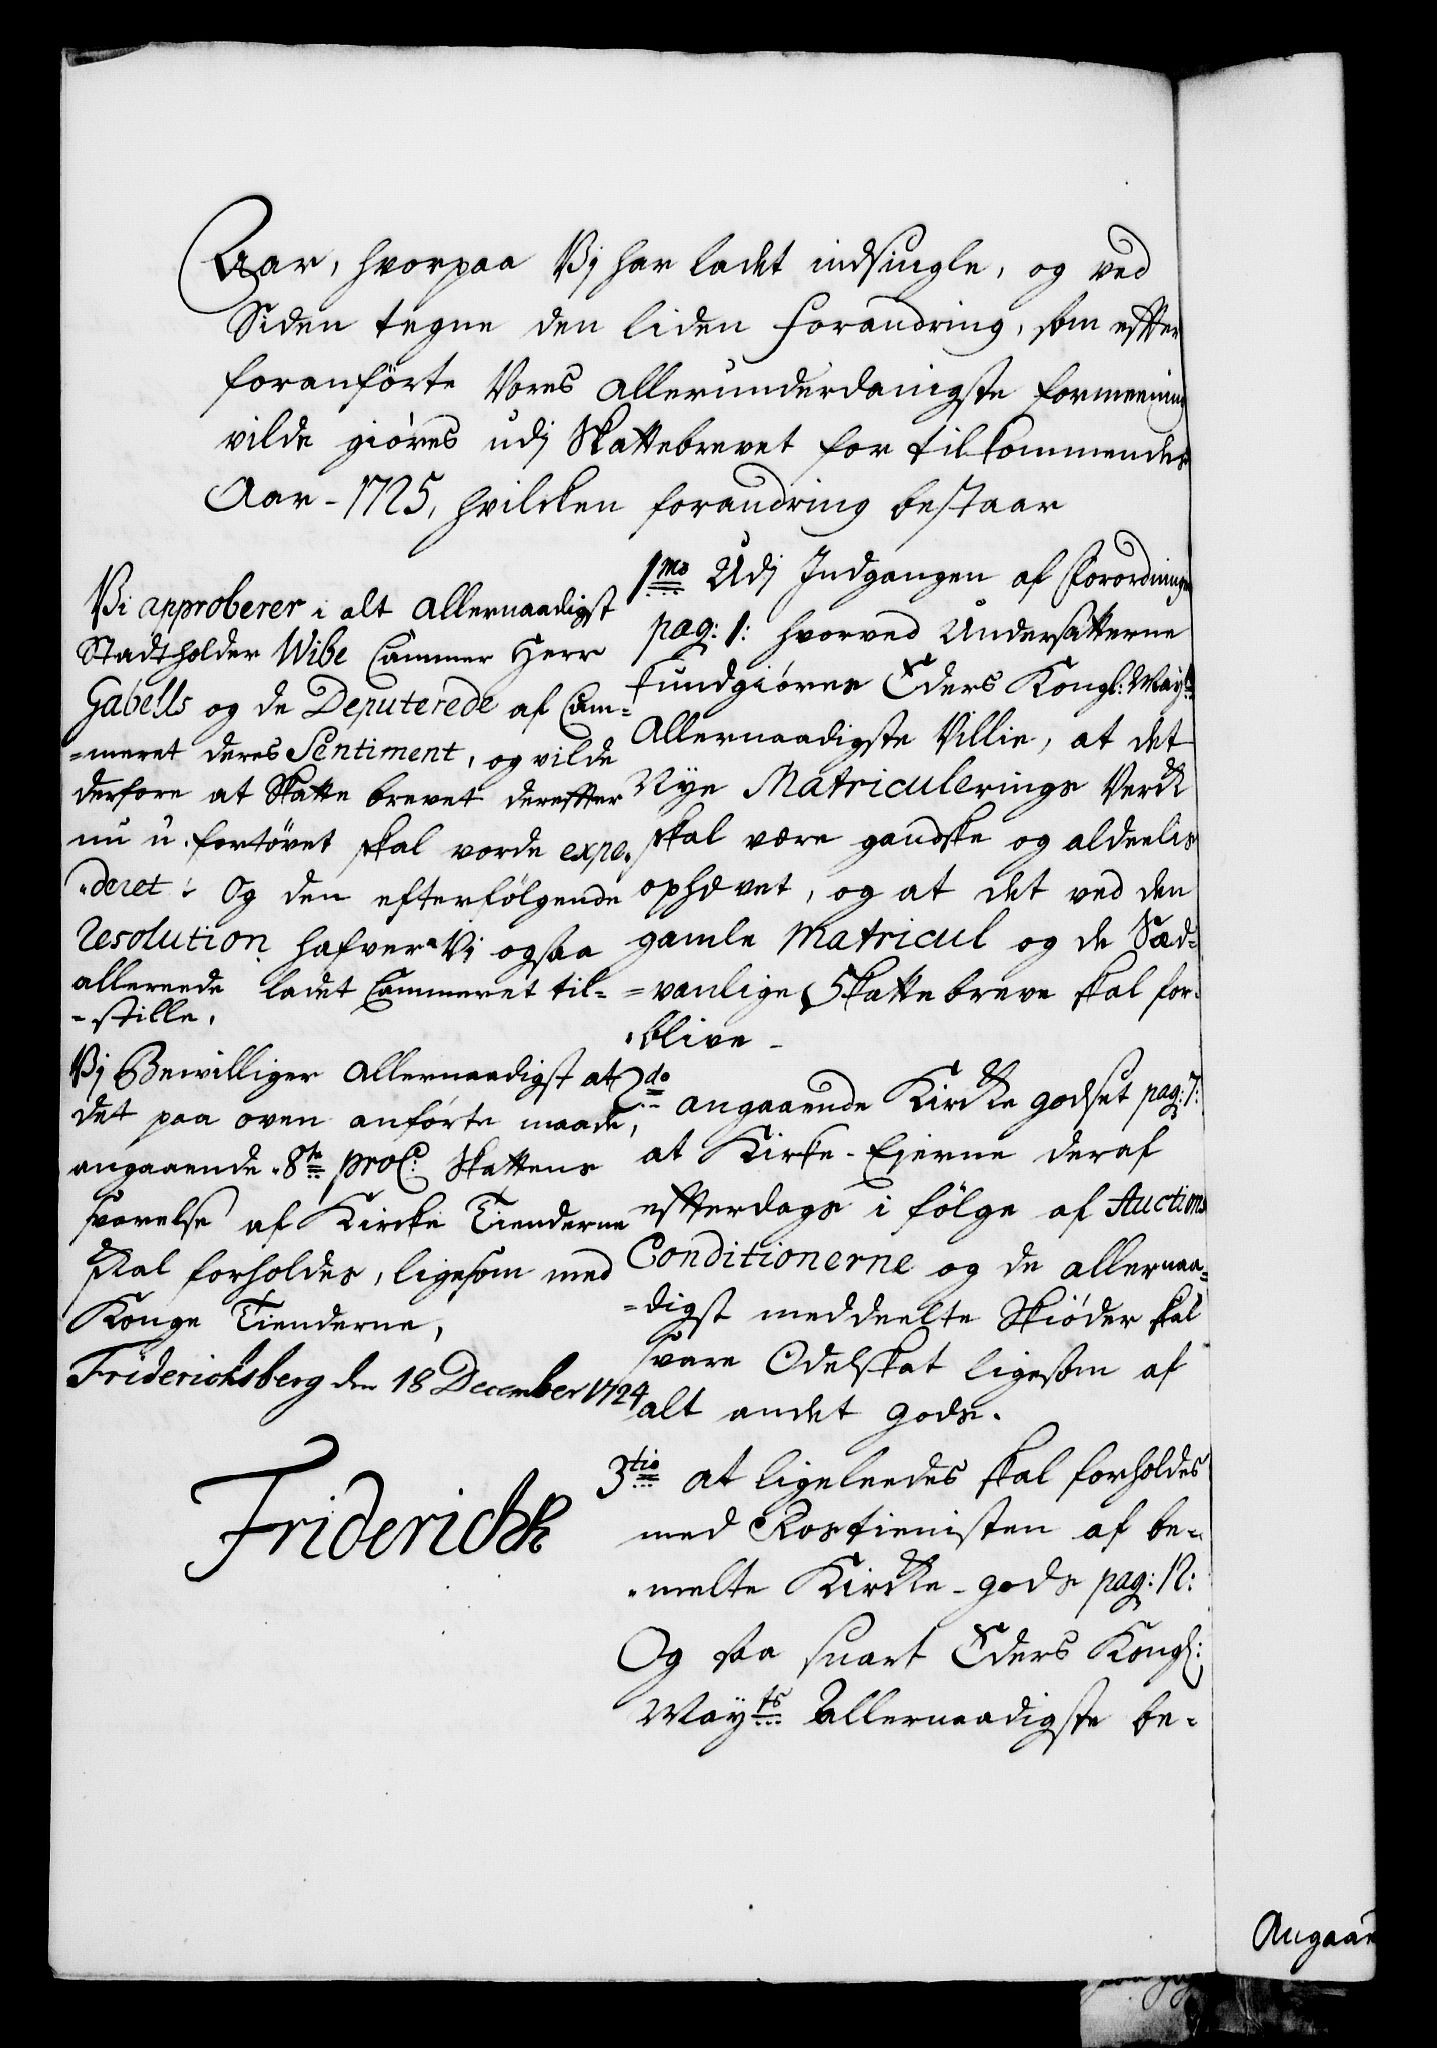 Aar, hvorpaa Vj har ladet indsingle, og ved
Siden tegne den liden forandring, som efter
foranførte Vores allerunderdanigste formeening
vilde giøres udj Skattebrevet for tilkommendes
Aar - 1725, hvilcken forandring bestaar
Vi approberer i alt allernaadigst
Stadtholder Wibe Cammer Herr
Gabells og de Deputerede af Cam=
=meret deres Sentiment, og vilde
derfore at Skatte brevet derefter
nu u-fortøvet skal vorde expe=
=deret: Og den efterfølgende
resolution hafver Vi ogsaa
allereede ladet Cammeret til=
=stille.
Vj Bewilliger allernaadigst at
det paa oven anførte maade,
angaaende 8te proC: Skattens
svarelse af Kircke Tienderne
skal forholdes, ligesom med
Konge Tienderne,
Friderichsberg den 18 December 1724
Friderich R
1mo Udj Indgangen af Forordningen
pag: 1: hvorved Undersåtterne
kundgiøres Eders Kongl: Mayts
allernaadigste Villie, at det
Nye Matriculerings Verck
skal være gandske og aldeelis
ophævet, og at det ved den
gamle Matricul og de Sæd=
=vanlige Skatte breve skal for=
=blive -
2do angaaende Kircke godset pag: 7:
at Kirke-Ejerne deraf
efterdags i følge af Auctions
Conditionerne og de allernaa=
=digst meddeelte Skiøder skal
svare Odelskat ligesom af
alt andet Gods.
3tio at ligeleedes skal forholdes
med Rostienisten af be=
=melte Kircke-gods pag: 12:
Og saa snart Eders Kongl:
Mayts allernaadigste be=
Angaaen